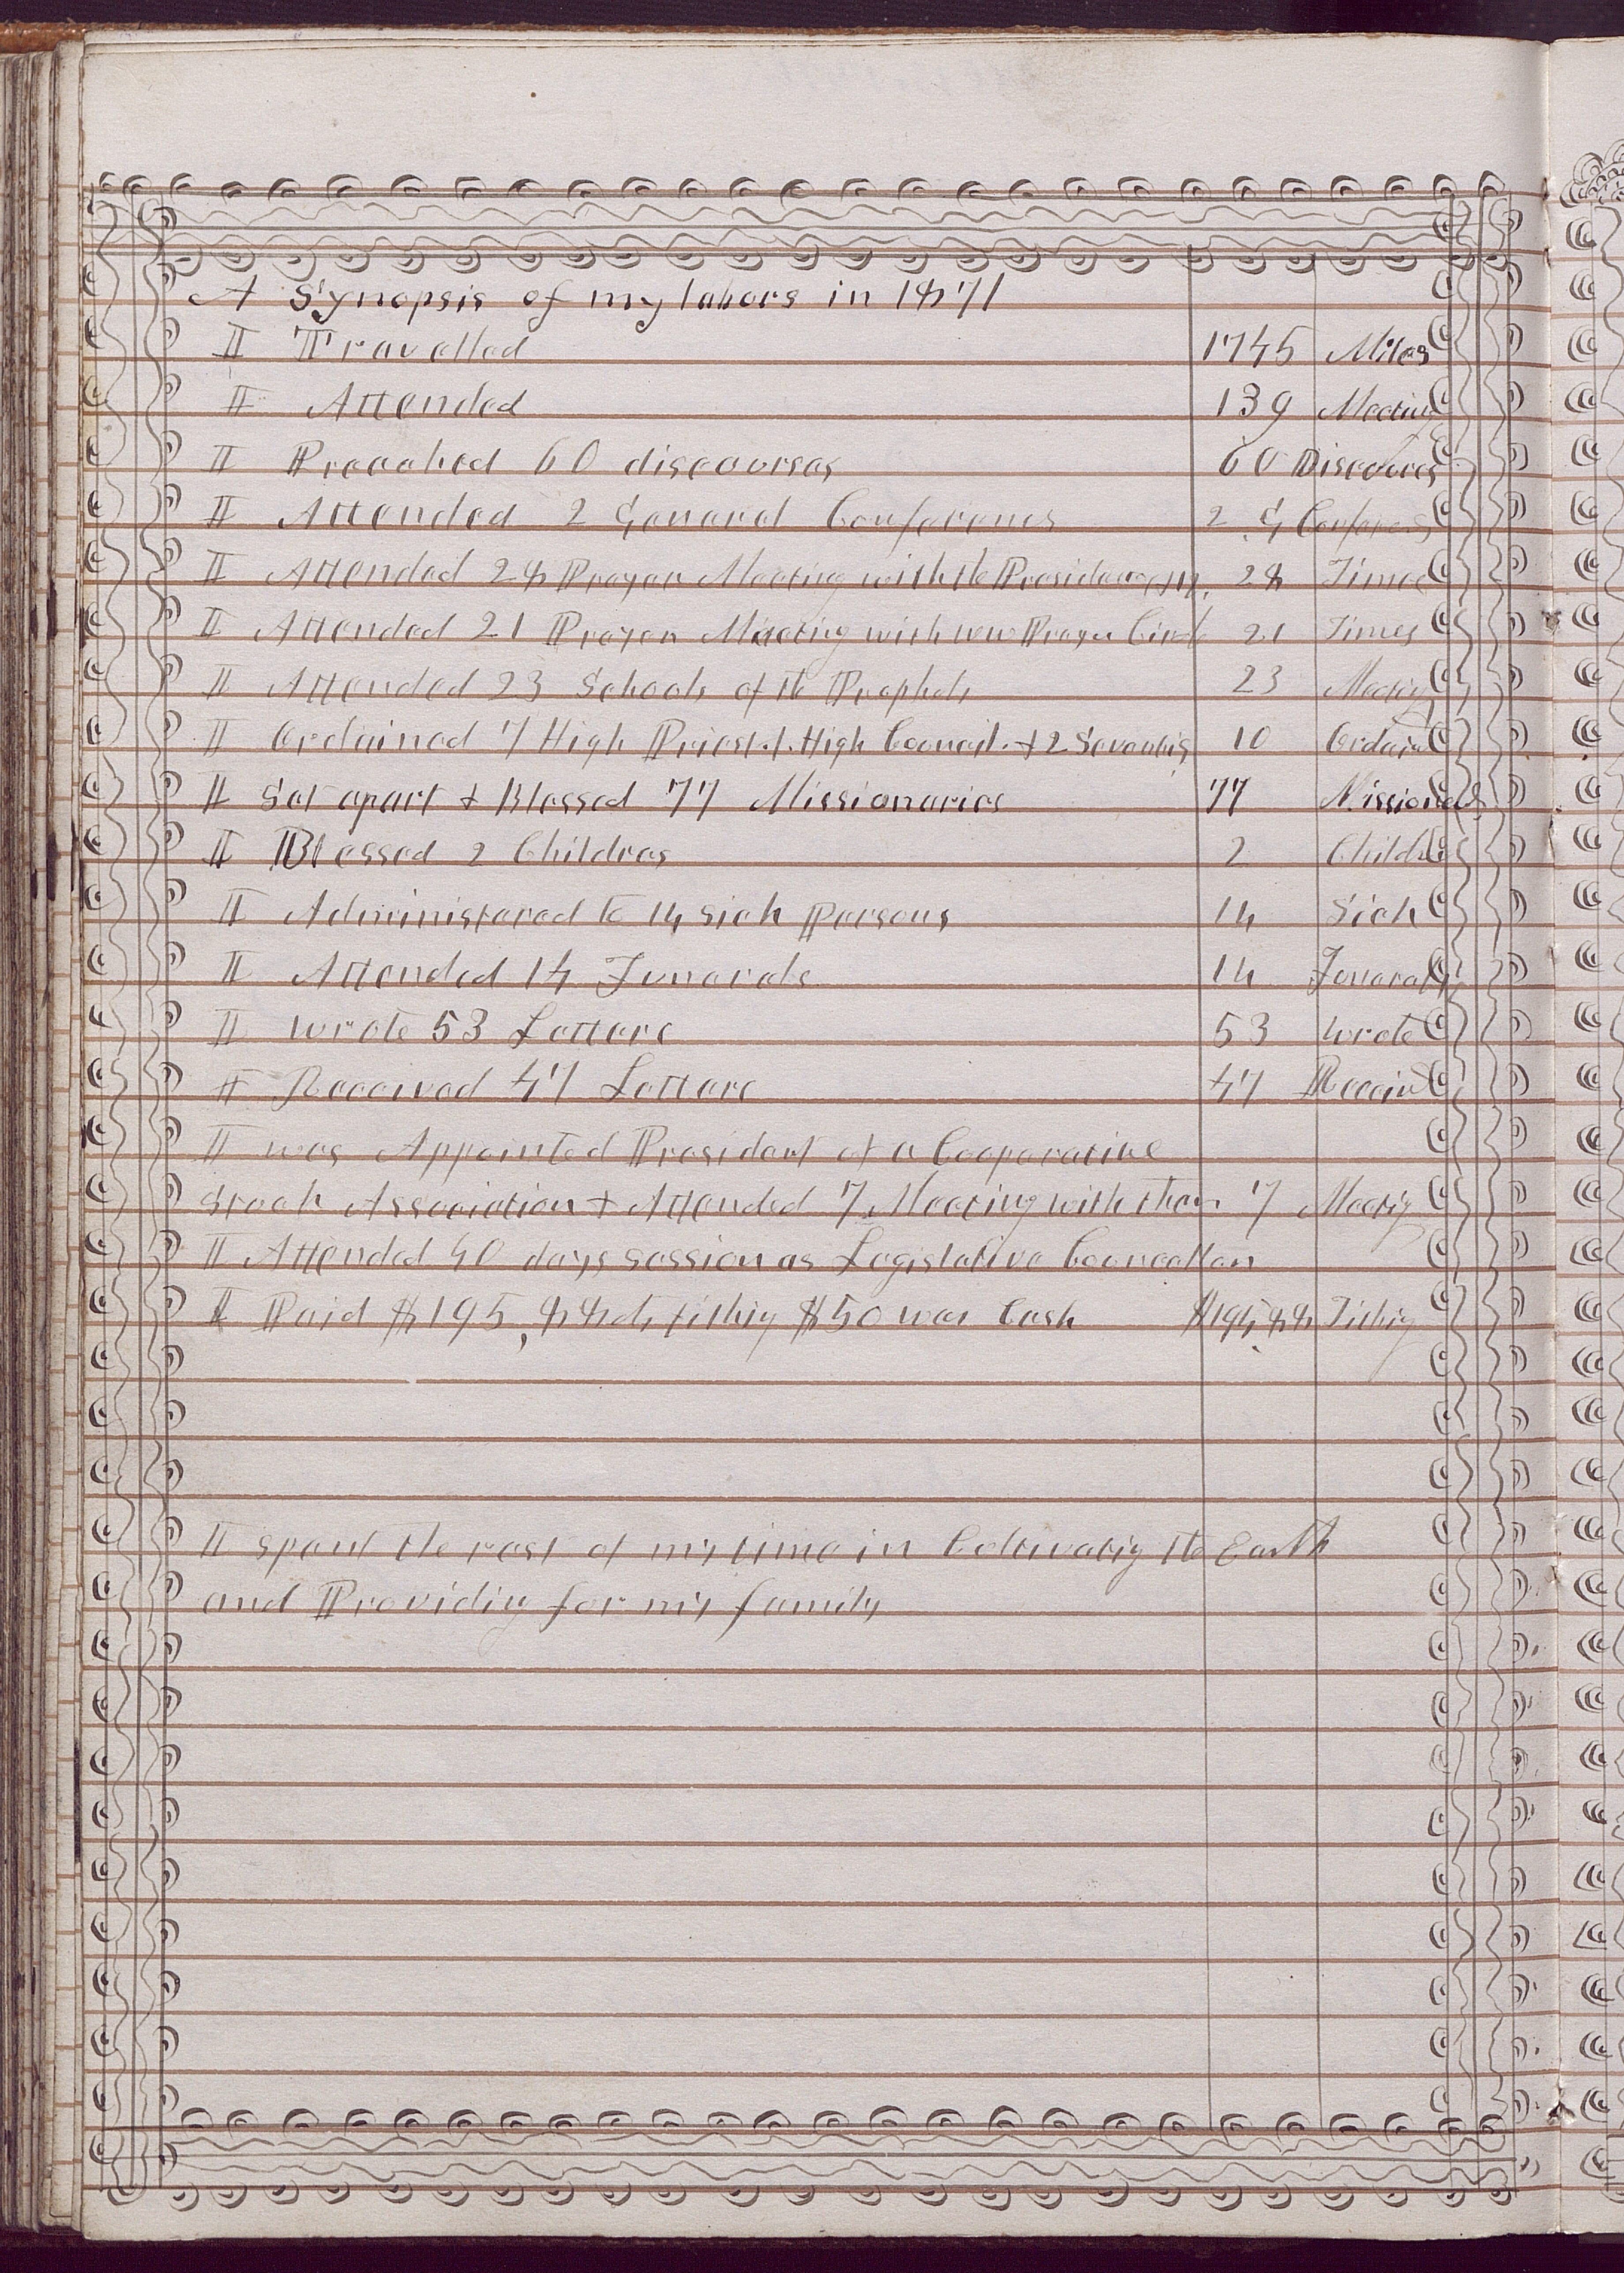 A Synopsis of my labors in 1871
I Travelled 1745 Miles
I Attended 139 Meeting
I Preached 60 discourses 60 Discourses
I Attended 2 General Conferences 2 G Conferences
I Attended 28 Prayer Meeting with the Presidency 28 Times
I Attended 21 Prayer Meeting with Prayer Circle 21 Times
I Attended 23 Schools of the Prophets 23 Meeting
I Ordained 7 High Priest. 1. High Council. & 2 Seventies 10 Ordained
I Set apart & Blessed 77 Missionaries 77
I Blessed 2 Children 2 Children
I Administered to 14 sick Persons 14 Sick
I Attended 14 Funerals 14 Funerals
I wrote 53 Letters 53 wrote
I Received 47 Letters 47 Receivd
I was Appointed President of a Cooperative
Stock Association & Attended 7 Meeting with them 7 Meetig
I Attended 40 days session as Legislative Councellor
I Paid $195,88 cts tithig $50 was Cash $195,88 Tithig
I spent the rest of my time in Cultivatig the Earth
and Providig for my family